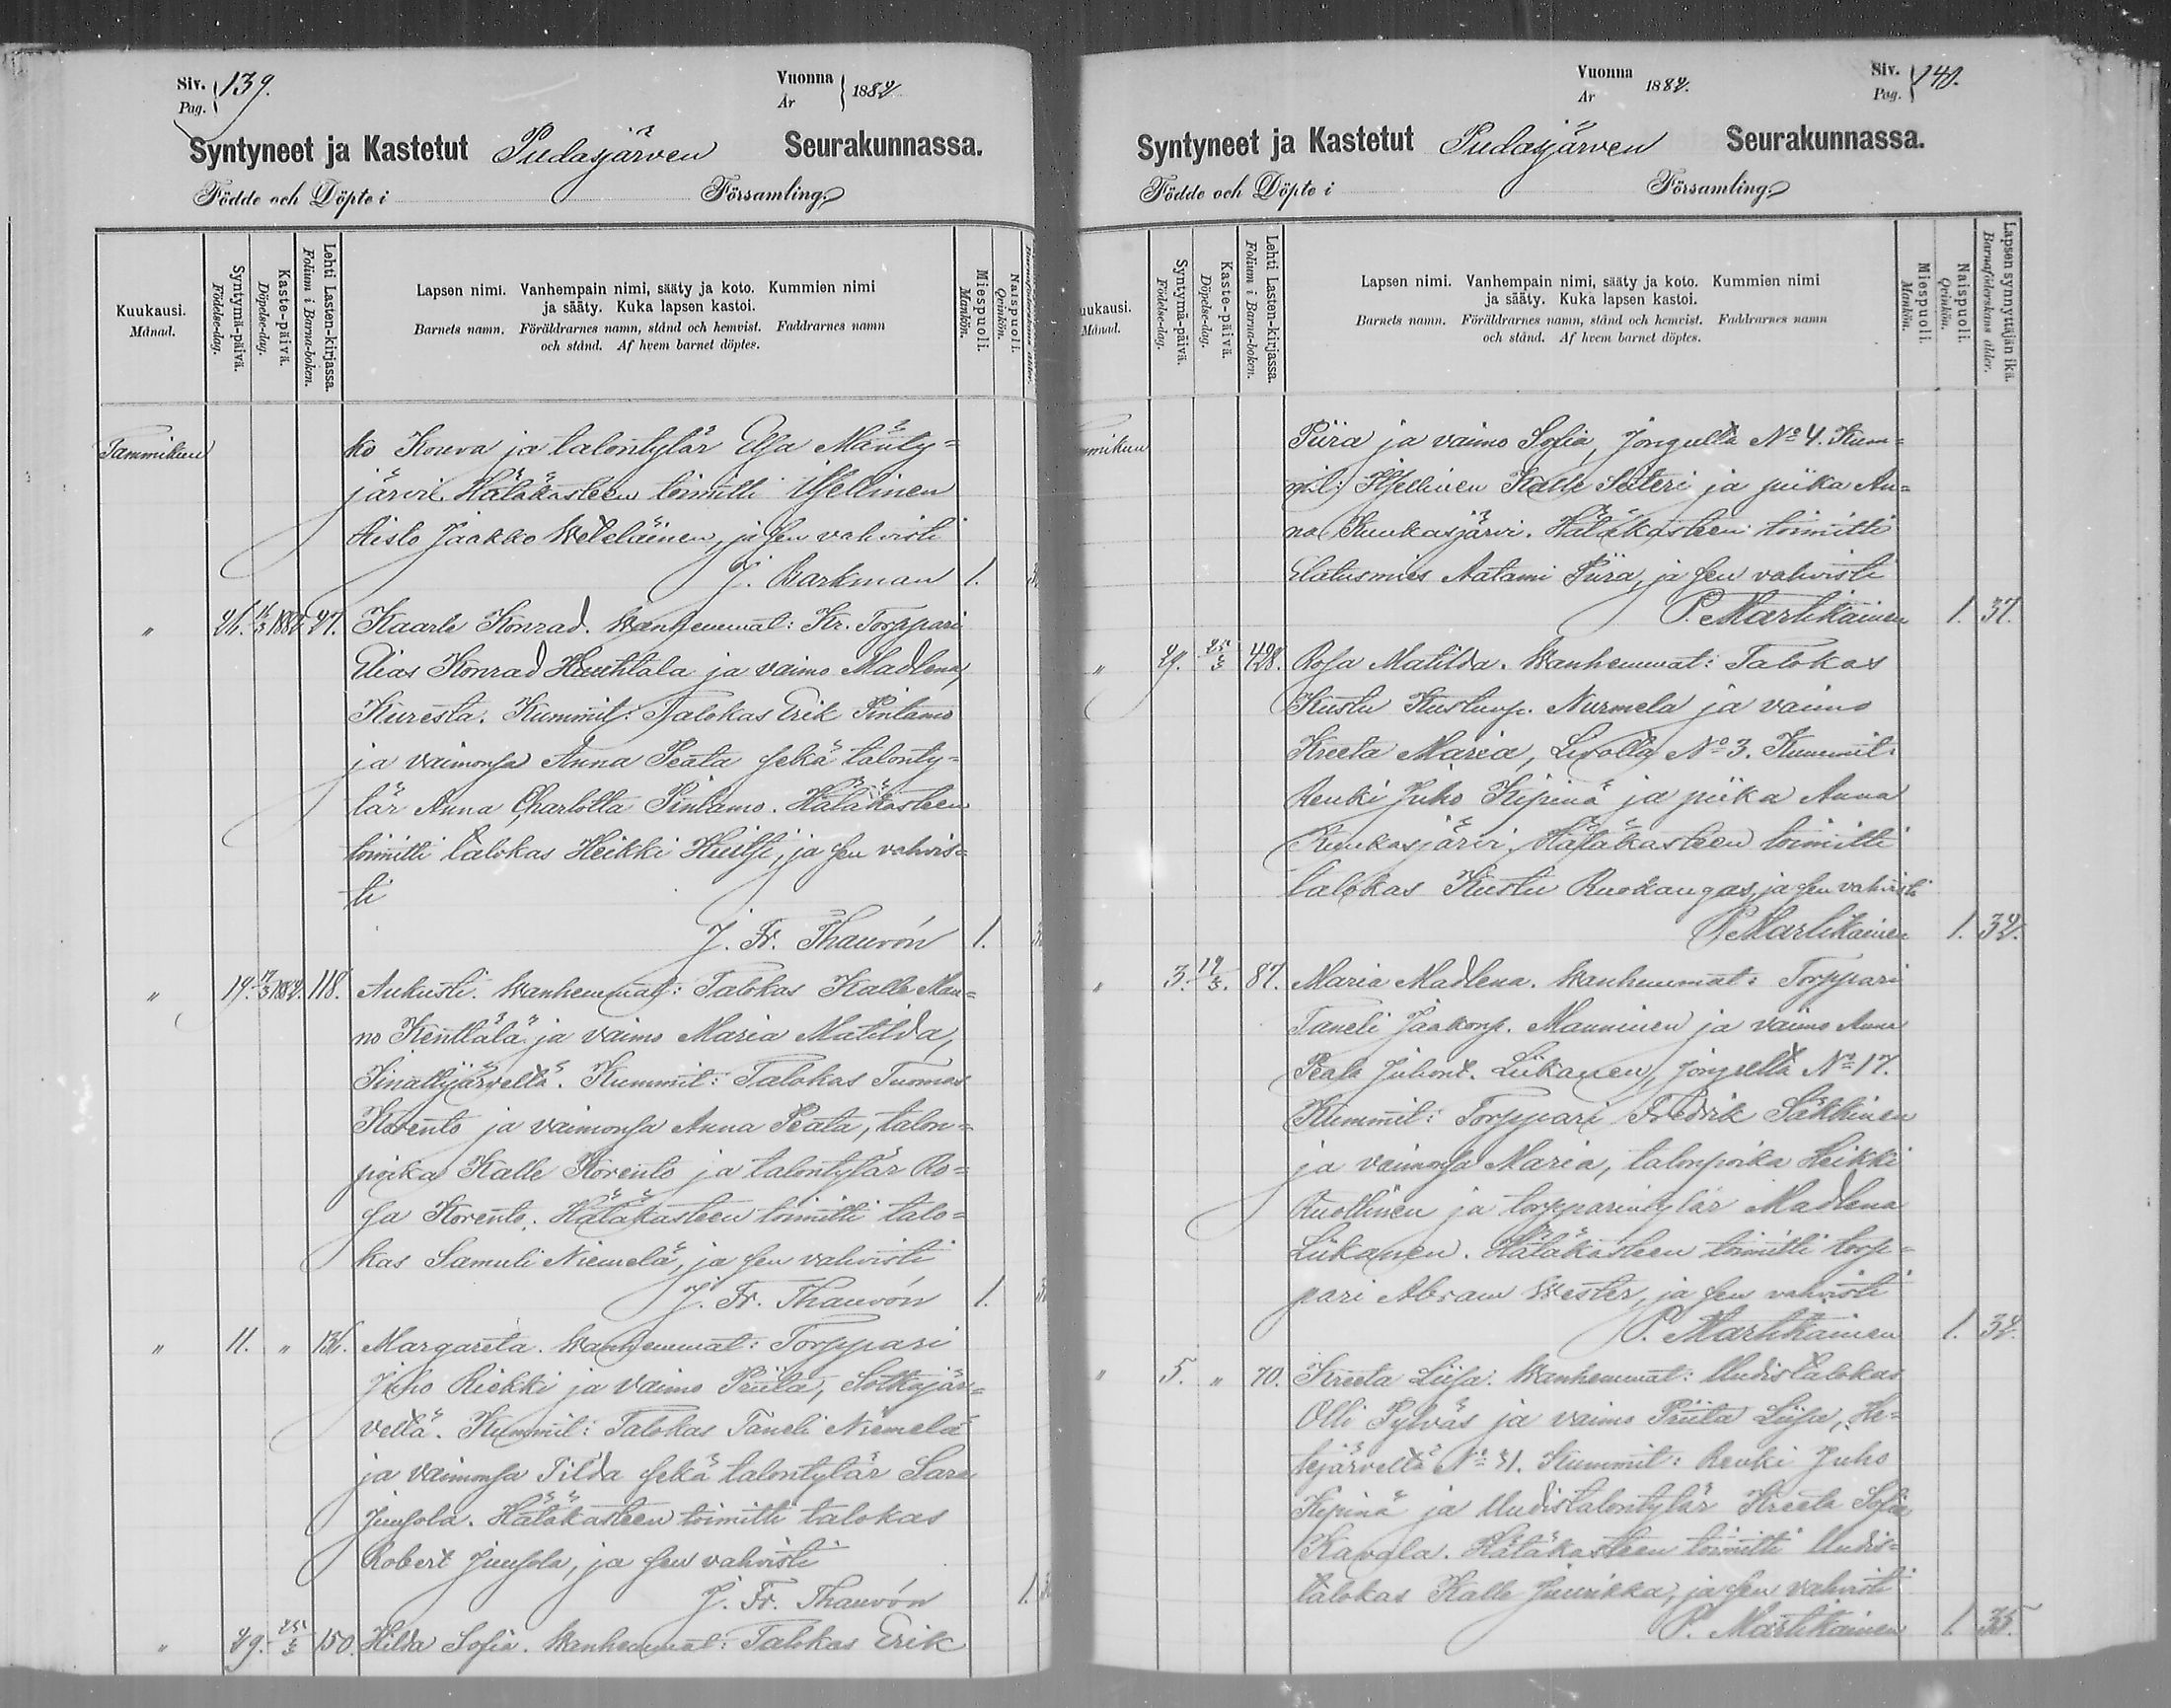 Siv. 139.
Pag.
Vuonna 1882
År
Syntyneet ja Kastetut Pudasjärven Seurakunnassa.
Födde och Döpte i Församling.
Kuukausi.
Månad.
Syntymä-päivä.
Födelse-dag.
Kaste-päivä.
Döpelse-dag.
Lehti Lasten-kirjassa.
Folium i Barna-boken.
Lapsen nimi. Vanhempain nimi, sääty ja koto. Kummien nimi
ja sääty. Kuka lapsen kastoi.
Barnets namn. Föräldrarnes namn, stånd och hemvist. Faddrarnes namn
och stånd. Af hvem barnet döptes.
Miespuoli.
Mankön.
Naispuoli.
Qvinkön.
Tammikuu ko Kouva ja talontytär Elsa Mänty=
järvi. Hätäkasteen toimitti Itsellinen
Risto Jaakko Weteläinen, ja sen vahvisti
J. Barkman 1.
" 26. 16/3 1882. 27. Kaarle Konrad. Wanhemmat: Kr. Torppari
Elias Konrad Hauhtala ja vaimo Madlena,
Kuresta. Kummit: Talokas Erik Pintamo
ja vaimonsa Anna Peata sekä talonty=
tär Anna Charlotta Pintamo. Hätäkasteen
toimitti talokas Heikki, ja sen vahvis=
ti
J. Fr. Thauvón 1.
" 19. 17/3 1882. 118. Aukusti. Wanhemmat: Talokas Kalle Man=
no Kenttälä ja vaimo Maria Matilda,
Sinattijärveltä. Kummit: Talokas Tuomas
Korento ja vaimonsa Anna Peata, talon=
poika Kalle Korento ja talontytär Ro=
sa Korento. Hätäkasteen toimitti talo=
kas Samuli Niemelä, ja sen vahvisti
J. Fr. Thauvón 1.
" 11. " 136. Margareta. Wanhemmat: Torppari
Juho Riekki ja vaimo Priita, Sotkajär=
veltä. Kummit: Talokas Taneli Niemelä
ja vaimonsa Tilda sekä talontytär Sara
Juusola. Hätäkasteen toimitti talokas
Robert Juusola, ja sen vahvisti
J. Fr. Thauvón 1.
" 29. 25/3 150. Hilda Sofia. Wanhemmat: Talokas Erik
Vuonna 1882.
År
Siv. 140.
Pag.
Syntyneet ja Kastetut Pudasjärven Seurakunnassa.
Födde och Döpte i Församling.
uukausi.
Månad.
Syntymä-päivä.
Födelse-dag.
Kaste-päivä.
Döpelse-dag.
Lehti Lasten-kirjassa.
Folium i Barna-boken.
Lapsen nimi. Vanhempain nimi, sääty ja koto. Kummien nimi
ja sääty. Kuka lapsen kastoi.
Barnets namn. Föräldrarnes namn, stånd och hemvist. Faddrarnes namn
och stånd. Af hvem barnet döptes.
Miespuoli.
Mankön.
Naispuoli.
Qvinkön.
Lapsen synnyttäjän ikä.
Barnaföderskans ålder.
mmikuu Piira ja vaimo Sofia, Jongulta No 4. Kum=
mit: Itsellinen Kalle Säteri ja piika An=
na Kuukasjärvi. Hätäkasteen toimitti
Elatusmies Aatami Piira, ja sen vahvisti
P. Martikainen 1. 37.
" 29. 25/3 428. Rosa Matilda. Wanhemmat: Talokas
Kustu Kustunp. Nurmela ja vaimo
Kreeta Maria, Livolla No 3. Kummit:
Renki Juho Kipinä ja piika Anna
Kuukasjärvi. Hätäkasteen toimitti
talokas Kustu Ruokangas, ja sen vahvisti
P. Martikainen 1. 32.
" 3. 19/3. 87. Maria Madlena. Wanhemmat: Torppari
Taneli Jaakonp. Manninen ja vaimo Anna
Peata Juhont. Liikanen, Jongulta No 17.
Kummit: Torppari Fredrik Säkkinen
ja vaimonsa Maria, talonpoika Heikki
Ruottinen ja torpparintytär Madlena
Liikanen. Hätäkasteen toimitti torp=
pari Abram Wester, ja sen vahvisti
P. Martikainen 1. 32.
" 5. " 70. Kreeta Liisa. Wanhemmat: Uudistalokas
Olli Pylväs ja vaimo Priita Liisa, He=
tejärveltä No 21. Kummit: Renki Juho
Kipinä ja Uudistalontytär Kreeta Sofia
Kavala. Hätäkasteen toimitti Uudis=
talokas Kalle Juurikka, ja sen vahvisti
P. Martikainen 1. 35.